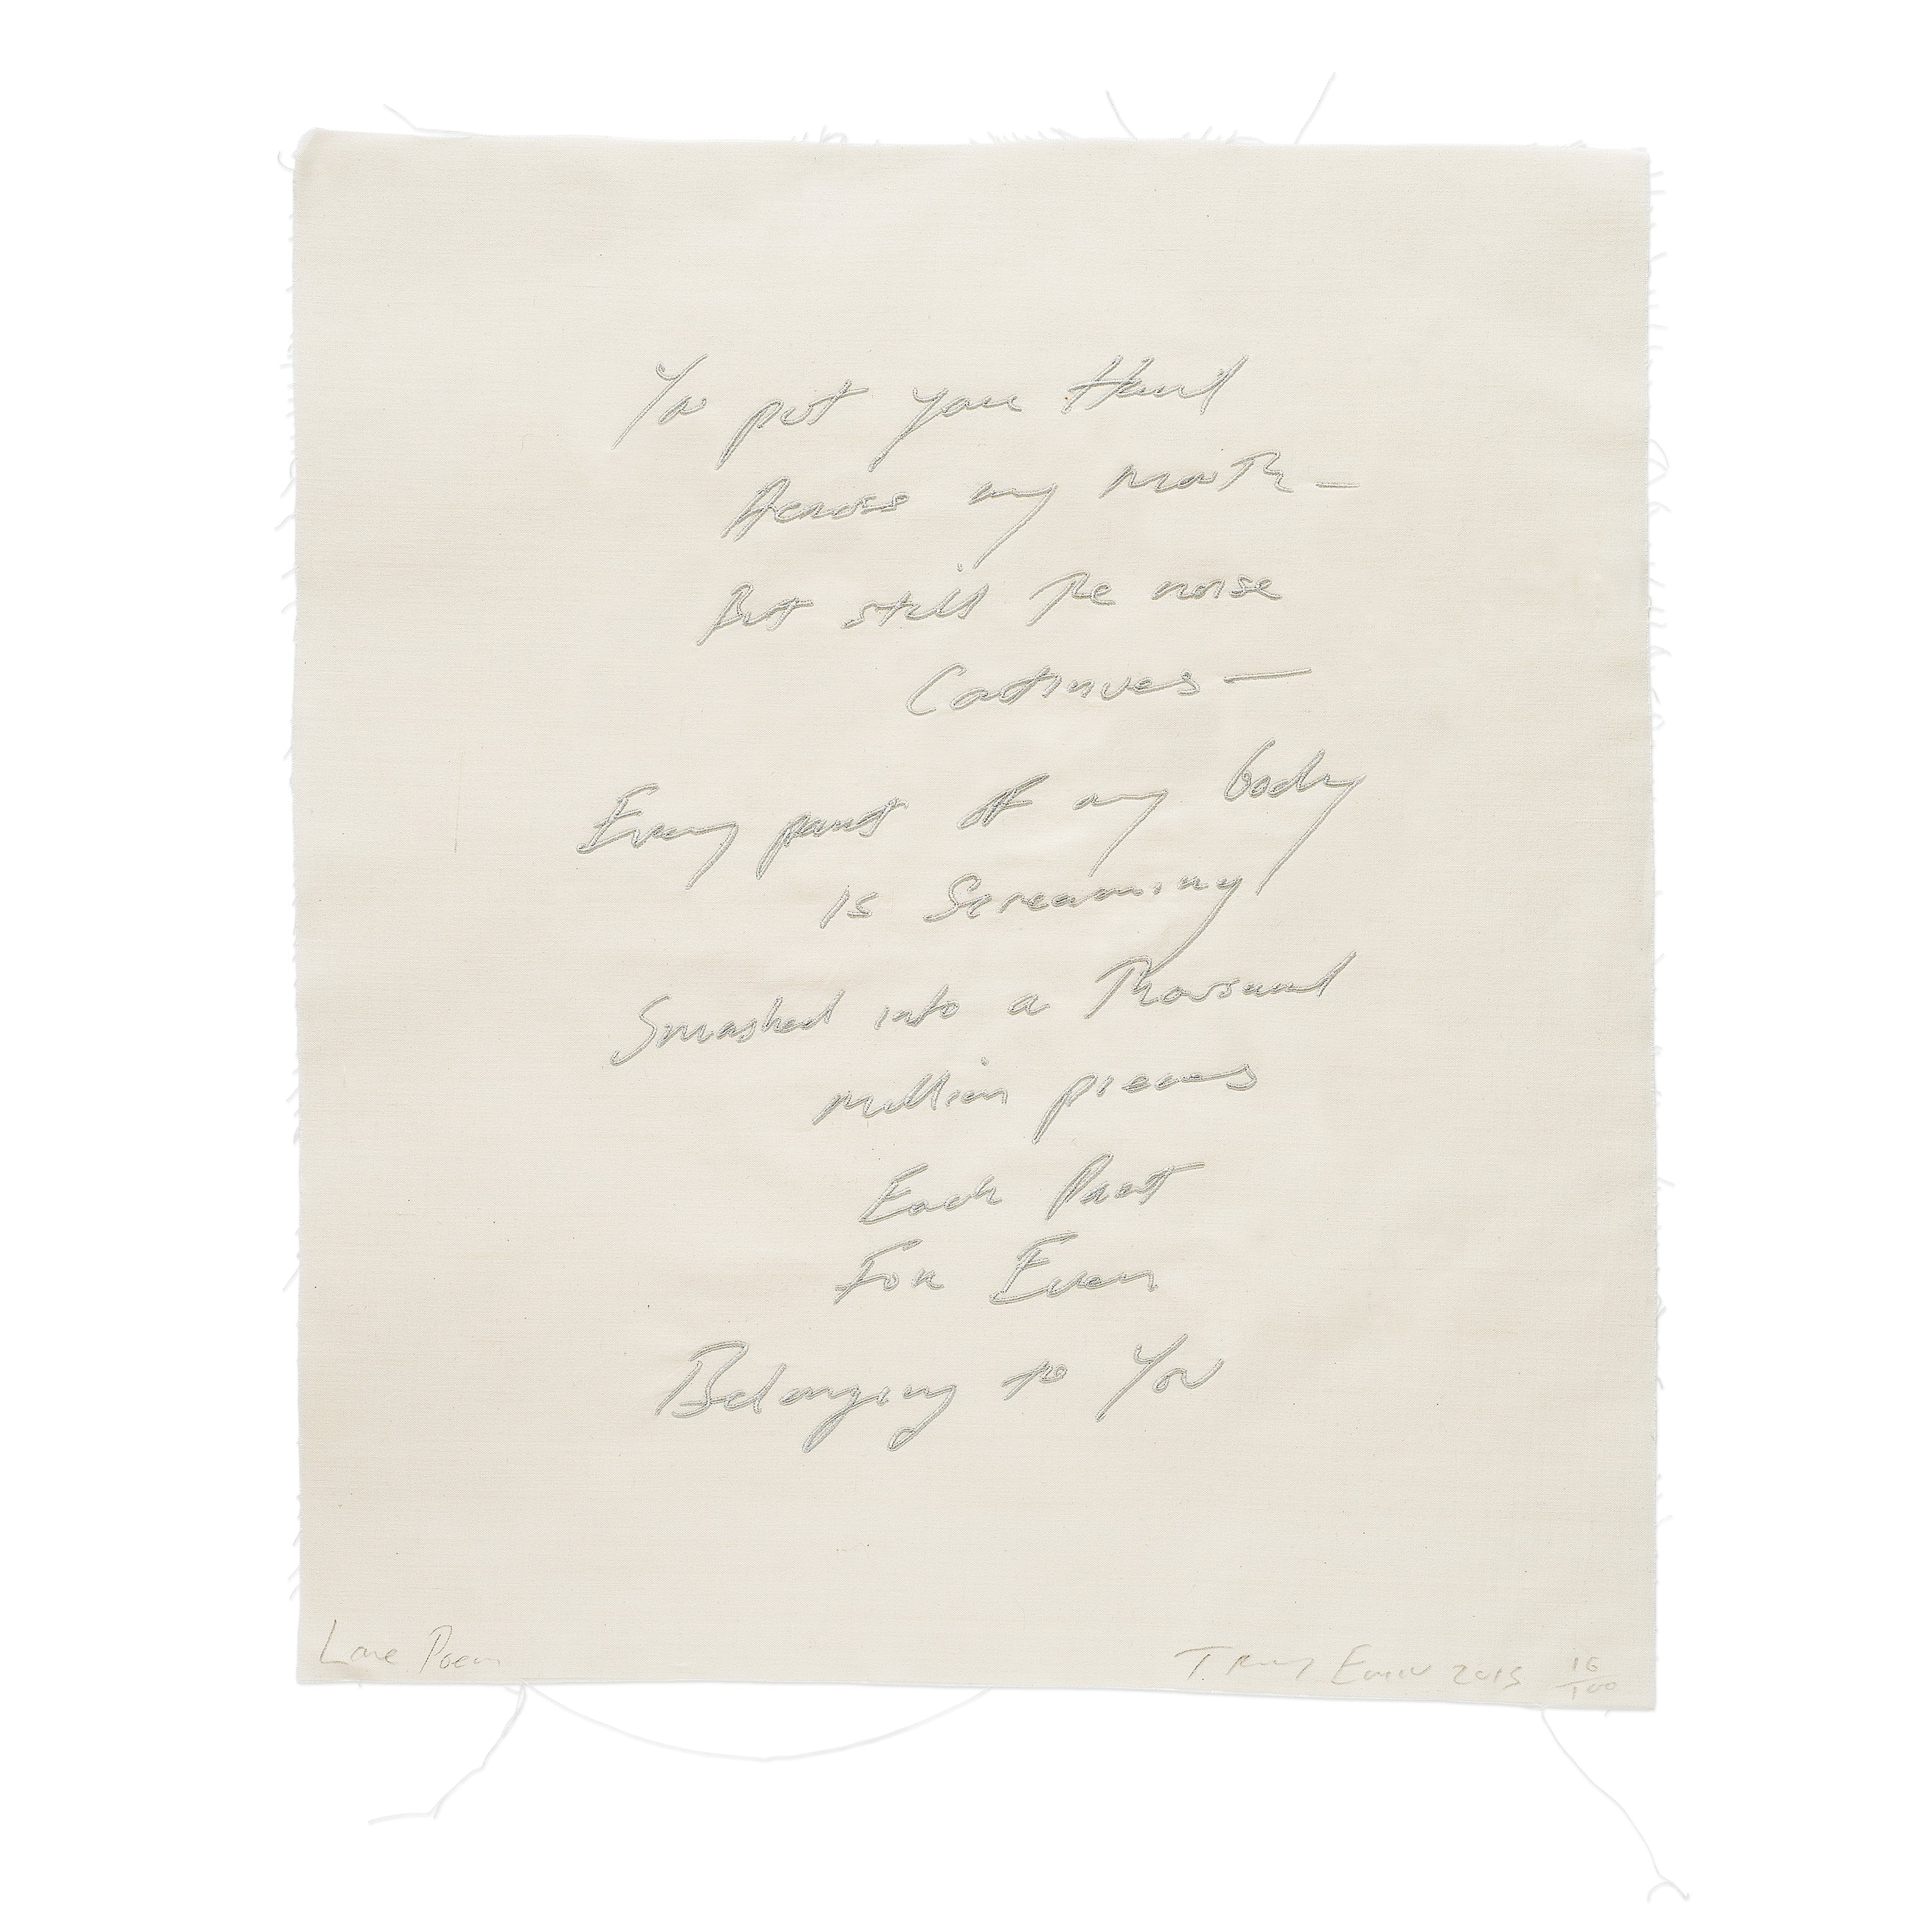 You put your Hand
Across my mouth—
But still The noise
Continues—
Every part of my body
is Screaming
Smashed into a Thousand
million pieces
Each Part
For Ever
Belonging to You
Love Poem
Tracey Emin 2013 16/100